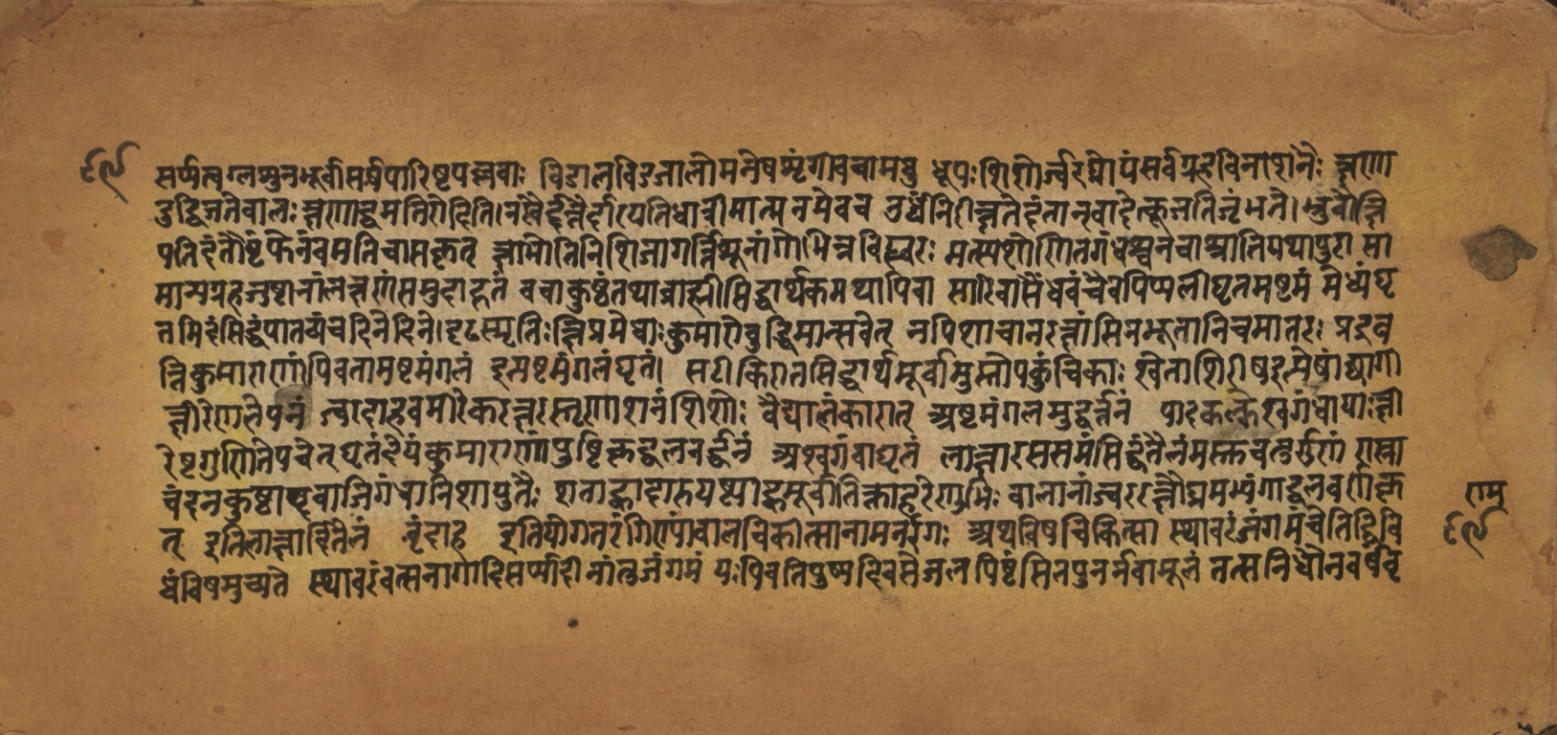 ९९
सर्पत्वग्लशुनमूर्वासर्षपारिष्टपल्लवाः विडालविडजालोममेषशृंगीवचामधु धूपःशिशोर्ज्वरघ्नोयंसर्वग्रहविनाशनैः क्षणा
दुद्विजतेबालःक्षणाद्रुमतिरोदिति।नखैर्द्दन्तैर्द्दारयेतिधात्रीमात्मनमेवच ऊर्ध्वंनिरीक्षतेदंतान्खादेत्कूजतिजृंभते।भ्रुवोक्षि
पतिदंतौष्टंफेनंवमतिचासकृत् क्षामोतिनिशिजागर्त्तिशूनांगोभिन्नविट्स्वरः मत्स्यशोणितगंधिश्चनचाश्नातियथापुरा सा
मान्यग्रहजुष्टानांलक्षणंसमुदाहृतं वचाकुष्ठंतथाब्राह्मीसिद्धार्थकमथापिवा सारिवासैंधवंचैवपिप्पलीघृतमष्टमं मेध्यंघृ
तमिदंसिद्धंपातव्यंचदिनेदिने।दृढस्मृतिःक्षिप्रमेधाःकुमारोबुद्धिमान्भवेत् नपिशाचानरक्षांसिनभूतानिचमातरः प्रद्रव
न्तिकुमाराणांपिबतामष्टमंगलं इत्यष्टमंगलंघृतं। सटीकिरातसिद्धार्थमूर्वामुस्तोपकुंचिकाः श्वेताशिरीषइत्येषांछागी
क्षीरेणलेपनं ज्वरदाहवमीरेकरक्षस्तृणाशनंशिशोः वैद्यालंकारात् अष्टमंगलमुद्वर्त्तनं पादकल्केश्वगंधायाःक्षी
रेष्टगुणितेपचेत् घृतंदेयंकुमाराणांपुष्टिकृद्बलवर्द्धनं अश्वगंधाघृतं लाक्षारससमंसिद्धंतैलंमस्तुचतुर्गुणं रास्ना
चंदनकुष्ठाब्दवाजिगंधानिशायुतैः शताह्वादारुयष्ट्याह्वमूर्वातिक्ताहरेणुभिः बालानांज्वररक्षोघ्नमभ्यंगाद्बलवर्णकृ
त् इतिलाक्षादितैलं वृंदात् इतियोगतरंगिण्यांबालचिकीत्सानामतरंगः अथविषचिकित्सा स्थावरंजंगमंचेतिद्विवि
धंविषमुच्यते स्थावरंवत्सनागादिसर्पादीनांतुजंगमं यःपिबतिपुष्यदिवसेजलपिष्टंसितपुनर्नवामूलं तत्सनिधौनवर्षंवृ
राम
९९